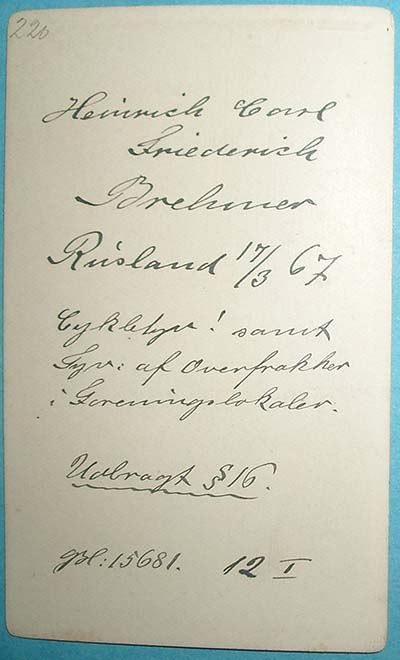 220
Heinrich Carl
Friederich
Brehmer
Rusland 17/3 67
Cykletyv! samt
Tyv: af Overfrakker
i Foreningslokaler.
Udbragt § 16.
Bl: 15681. 12 I